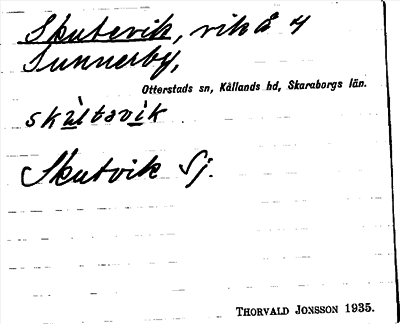 Skutevik, vik å 4
Sunnerby,
Otterstads sn, Kållands hd, Skaraborgs län.
skùltəvìk
Skutvik Sj.
THORVALD JONSSON 1935.